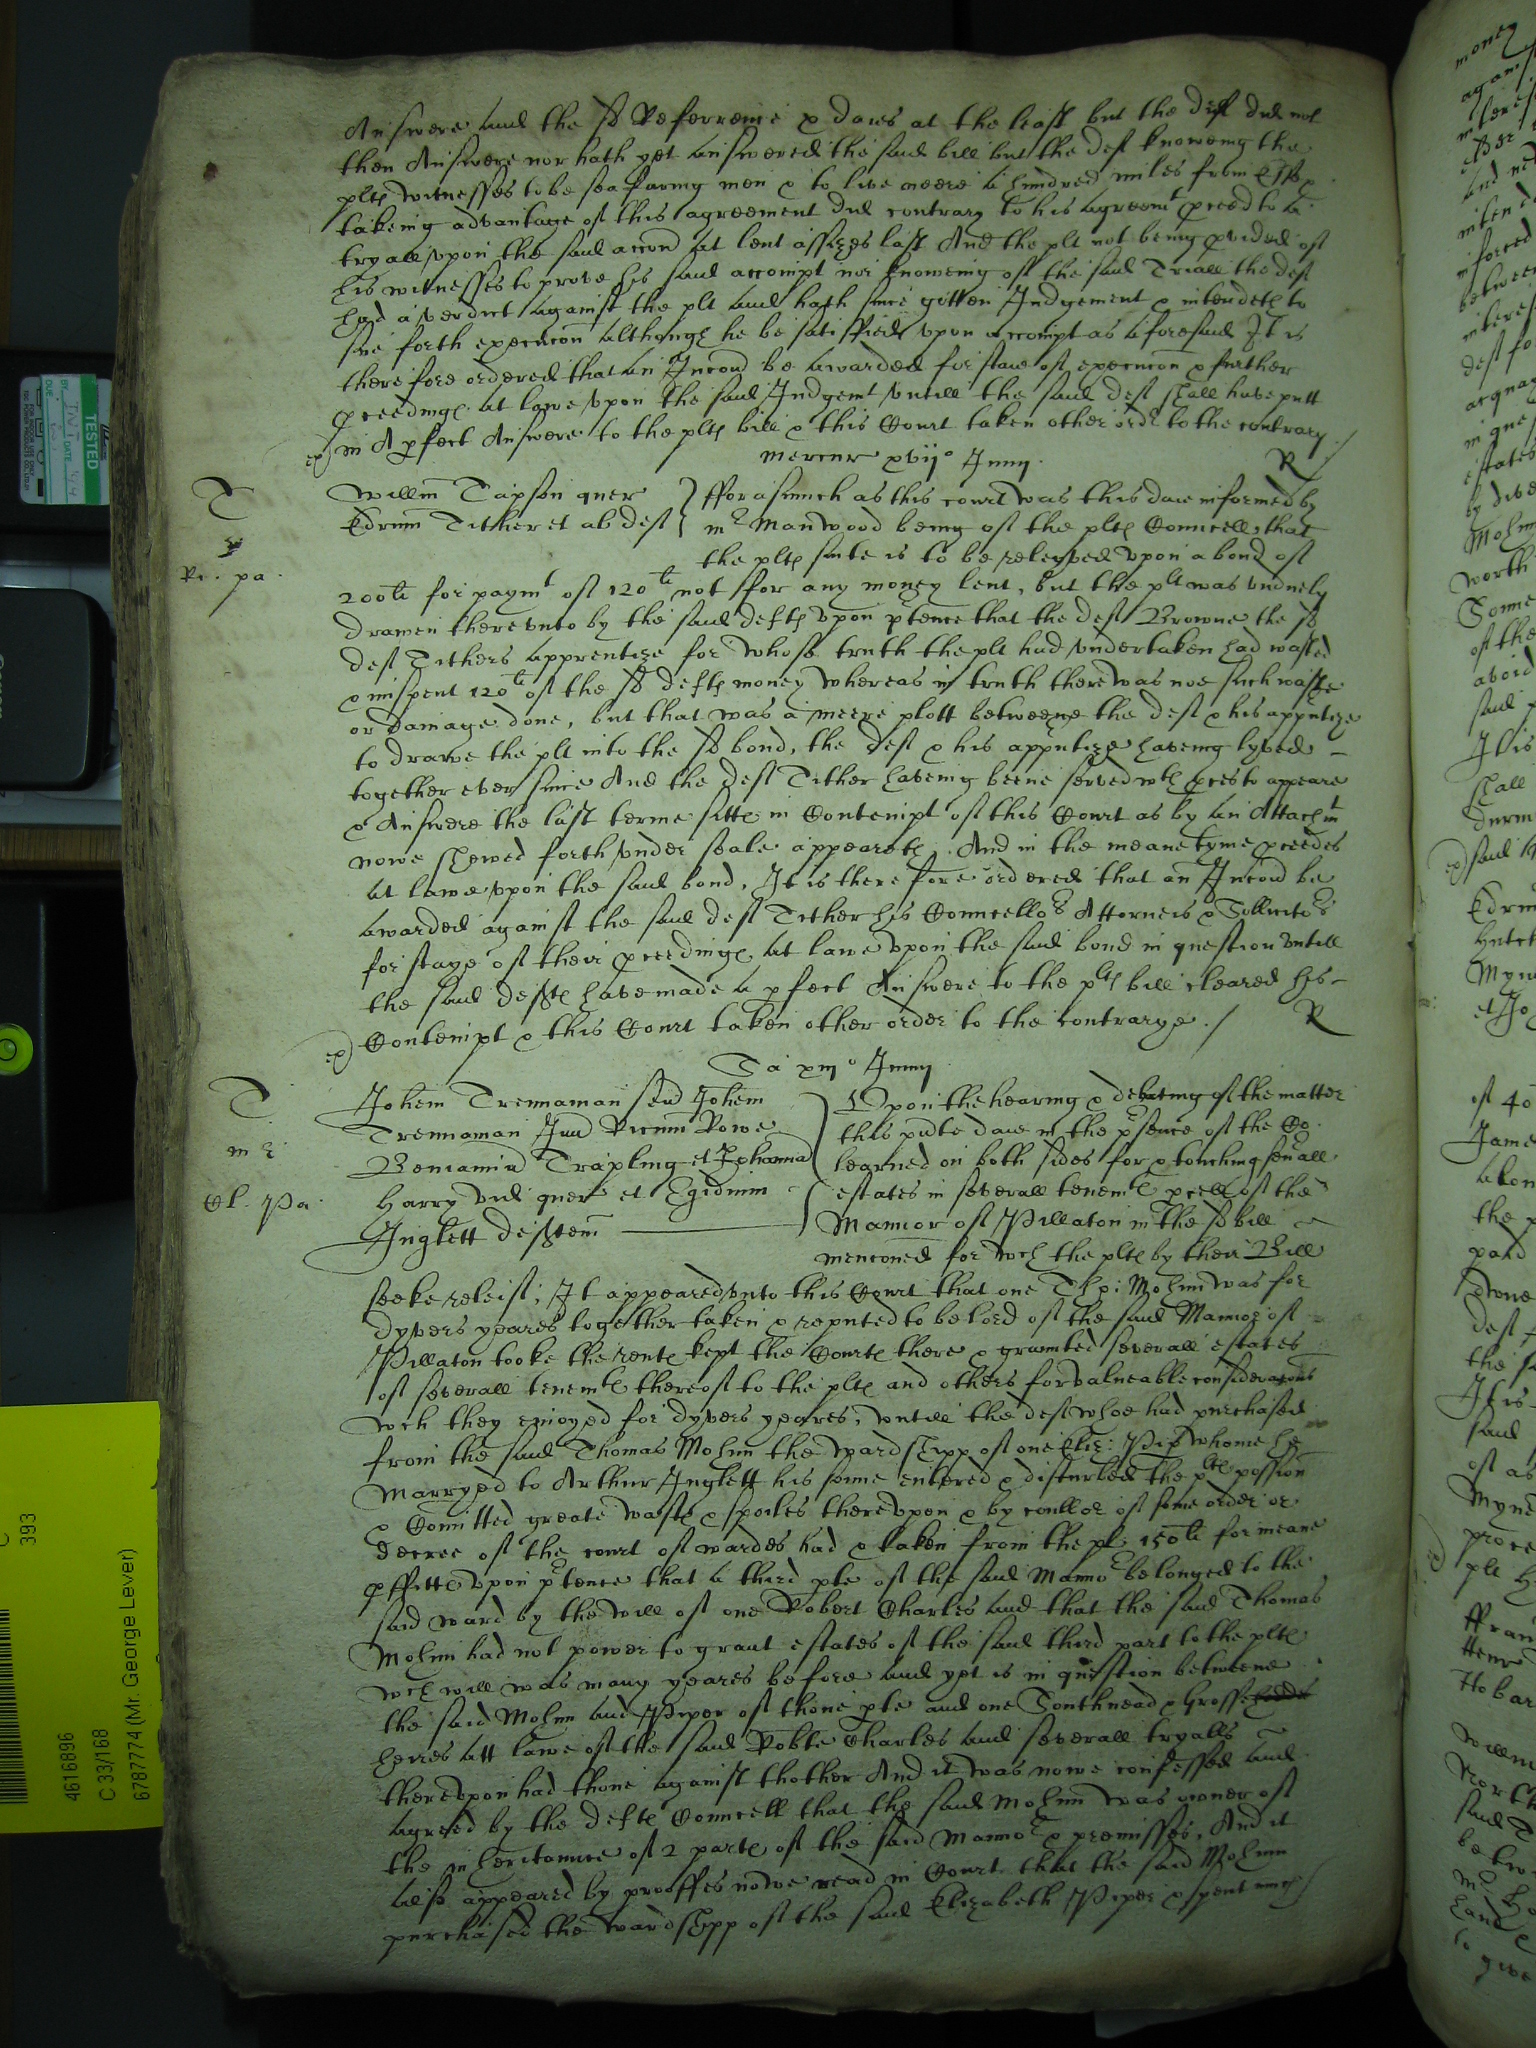 Answere and the sd Referrence x daies at the least but the deft did not
then Answere nor hath yet answered the said bill but the deft knoweing the
plts witnesses to be sea faring men & to live neere a hundred miles from Essex
takeing advantage of this agreement did contrary to his agreemt pceed to a
tryall upon the said accon at lent assizes last And the plt not being pvided of
his witnesses to prove his said accompt nor knoweing of the said Triall the deft
had a verdict against the plt and hath since gotten Judgement & intendeth to
sue forth execucon although he be satisfied upon accompt as aforesaid It is
therefore ordered that an Inconn be awarded for staie of execucon & further
pceedings at lawe upon the said Judgemt untill the said deft shall have putt
in A pfect Answere to the plts bill & this Court taken other ordr to the contrary
Mercur xviijo Junij
R
T
Ri. pa.
Willm Tapson quer
Edrum Tither et al deft
fforasmuch as this court was this daie informed by
mr Manwood being of the plts Councell, that
the plts suite is to be releyved upon a bond of
200li for paymt of 120li not for any money lent, but the plt was unduely
drawen thereunto by the said defts upon ptence that the deft Browne the sd
deft Tithers apprentize for whose truth the plt had undertaken had wasted
& mispent 120li of the sd defts money whereas in truth there was noe such waste
or damage done, but that was a meere plott betweene the deft & his apprntize
to drawe the plt into the sd bond, the deft & his apprntize haveing lyved
together ever since And the deft Tither haveing beene served wth pces to appeare
& Answere the last terme sitts in Contempt of this Court as by an Attachmt
nowe shewed forth under seale appeareth. And in the meane tyme pceedes
at lawe upon the said bond. It is therefore ordered that an Inconn be
awarded against the said deft Tither his Councellors Attorneis & Sollicitors
for staye of their pceedings at lawe upon the said bond in question untill
the said defts have made a pfect Answere to the plts bill cleared his
Contempt & this Court taken other order to the contrarye ./
R
Sa xiijo Junij
T
Cl. Pa.
Johem Trennaman sen Johem
Trennaman Jun Ricum Rowe
Beniamin Trapling et Johanna
Harry vid quer et Egidium
Inglett defftem
Upon the hearing & debating of the matter
this pnte daie in the psence of the Co.
learned on both sides for & touching seuall
estates in severall tenemts pcell of the
Mannor of Pillaton in the sd bill
mencioned for wch the plts by their Bill
seeke releif; It appeared unto this Court that one Tho: Mohun was for
dyvers yeares together taken & reputed to be lord of the said Mannor of
Pillaton tooke the rents kept the Courts there & graunted severall estates
of severall tenemts thereof to the plts and others for valueable consideracons
wch they enioyed for dyvers yeares, untill the deft whoe had purchased
from the said Thomas Mohun the wardshipp of one Eliz: Pip whome he
marryed to Arthur Inglett his sonne entered & disturbed the plts possion
& Comitted greate wasts & spoiles thereupon & by coullor of some order or
decree of the court of wardes had & taken from the plts 150li for meane
pffitts upon ptence that a third pte of the said Mannor belonged to the
said ward by the will of one Robert Charles and that the said Thomas
Mohun had not power to graut estates of the said third part to the plts
wch will was many yeares before and yet is in question betweene
the said Mohun and Piper of thone pte and one Southmead & Grosse
heires att lawe of the said Robte Charles and severall tryalls
thereupon had thone against thother And it was nowe confessed and
agreed by the defts Councell that the said Mohun was owner of
the inheritannce of 2 parts of the said Mannor & premisses, And it
also appeared by prooffes nowe read in Court that the said Mohun
purchased the wardshipp of the said Elizabeth Piper & spent much
TESTED
393
4616896
C 33/168
6787774 (Mr. George Lever)